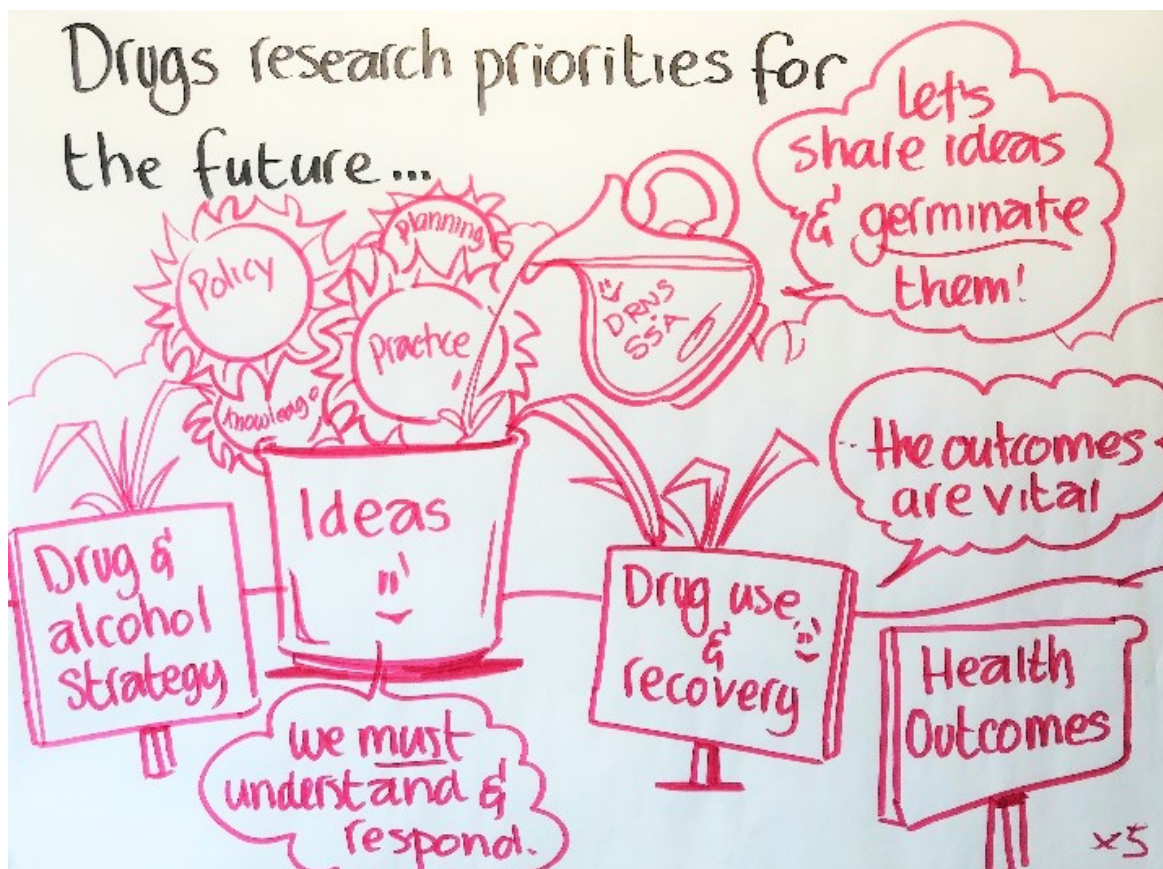 Drugs research priorities for
the future...
let's
share ideas
& germinate
them!
Policy
planning
practice
knowledge
DRNS
SSA
Ideas
the outcomes
are vital
Drug &
alcohol
strategy
Drug use
&
recovery
Health
Outcomes
we must
understand &
respond.
x5